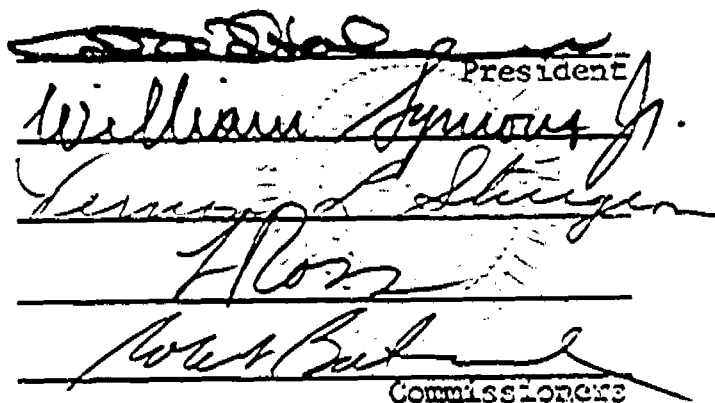 President
William Symons Jr.
Vernon L. Sturgeon
L Ross
Robert Bat
Commissioners